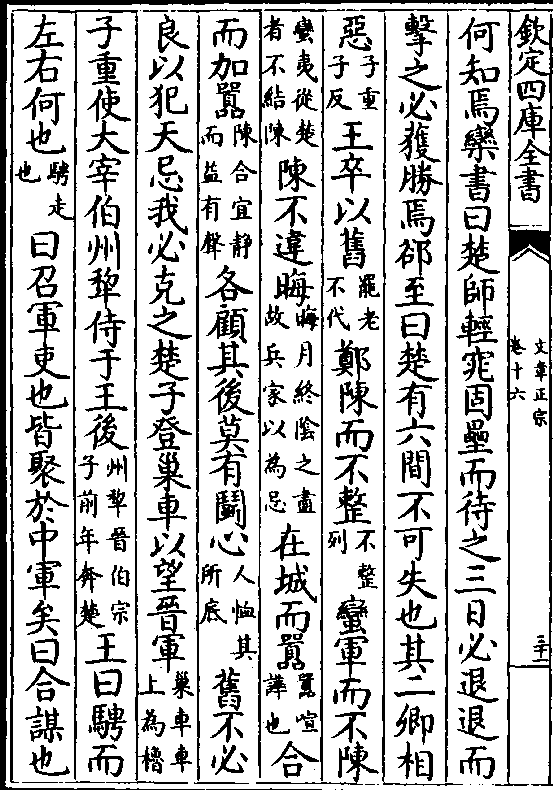 欽定四庫全書
文章正宗
卷十六
三十一
何知焉欒書曰楚師輕窕固壘而待之三日必退退而
擊之必獲勝焉郤至曰楚有六間不可失也其二卿相
惡子重子反王卒以舊罷老不代鄭陳而不整不整列蠻軍而不陳
蠻夷從楚者不結陳陳不違晦晦月終陰之盡故兵家以為忌在城而囂囂喧譁也合
而加囂陳合宜靜而益有聲各顧其後莫有鬬心人恤其所底舊不必
良以犯天忌我必克之楚子登巢車以望晉軍巢車車上為櫓
子重使大宰伯州犂侍于王後州犂晉伯宗子前年奔楚王曰騁而
左右何也騁走也曰召軍吏也皆聚於中軍矣曰合謀也